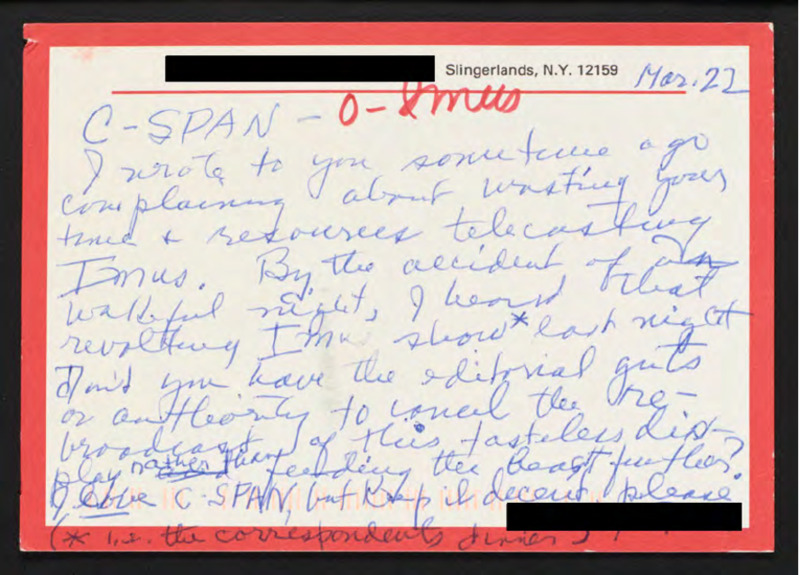 Slingerlands, N.Y. 12159 Mar. 22
C-SPAN - O-Imus
I wrote to you sometime ago
complaining about wasting your
time & resources telecasting
Imus. By the accident of a
wakeful night, I heard that
revolting Imus show* last night
Don't you have the editorial guts
or authority to cancel the re-
broadcast of this tasteless dis-
play rather than feeding the beast further?
I love C-SPAN, but keep it decent, please
(* i.e. the correspondents dinner)